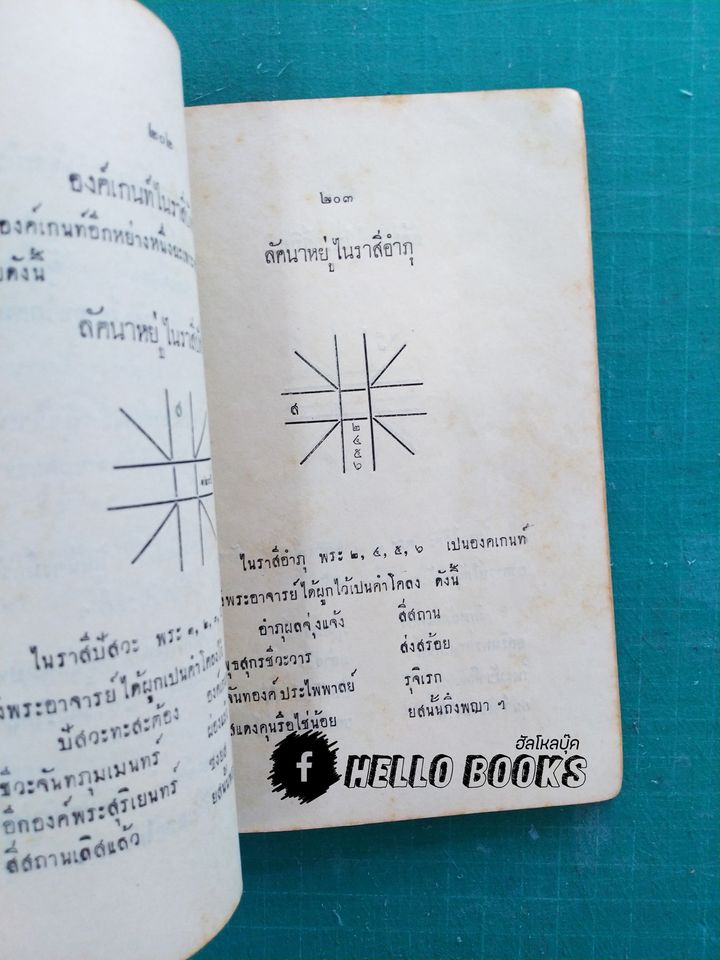 ๒๐๒
องค์เกนท์ในราสี
องค์เกนท์อีกหย่างหนึ่ง
ดังนี้
ลัคนาหยู่ในราสี
ส
ในราสีปัสวะ พระ ๑, ๒, ๓,
งพระอาจารย์ได้ผูกเปนคำโคลง
ปัสวะทะสะต้อง
ชีวะจันทภุมเมนทร์
อีกองค์พระสุริเยนทร์
สี่สถานเลิสแล้ว
๒๐๓
ลัคนาหยู่ในราสีอำภุ
ส
๒
๔
๕
๖
ในราสีอำภุ พระ ๒, ๔, ๕, ๖ เปนองคเกนท์
งพระอาจารย์ได้ผูกไว้เปนคำโคลง ดังนี้
อำภุผลจุ่งแจ้ง สี่สถาน
พุธสุกรชีวะวาร ส่งสร้อย
จันทองค์ประไพพาลย์ รุจิเรก
สแดงคุนรือไช่น้อย ยสนั้นถิงพญา ๆ
ฮัลโหลบุ๊ค
f HELLO BOOKS